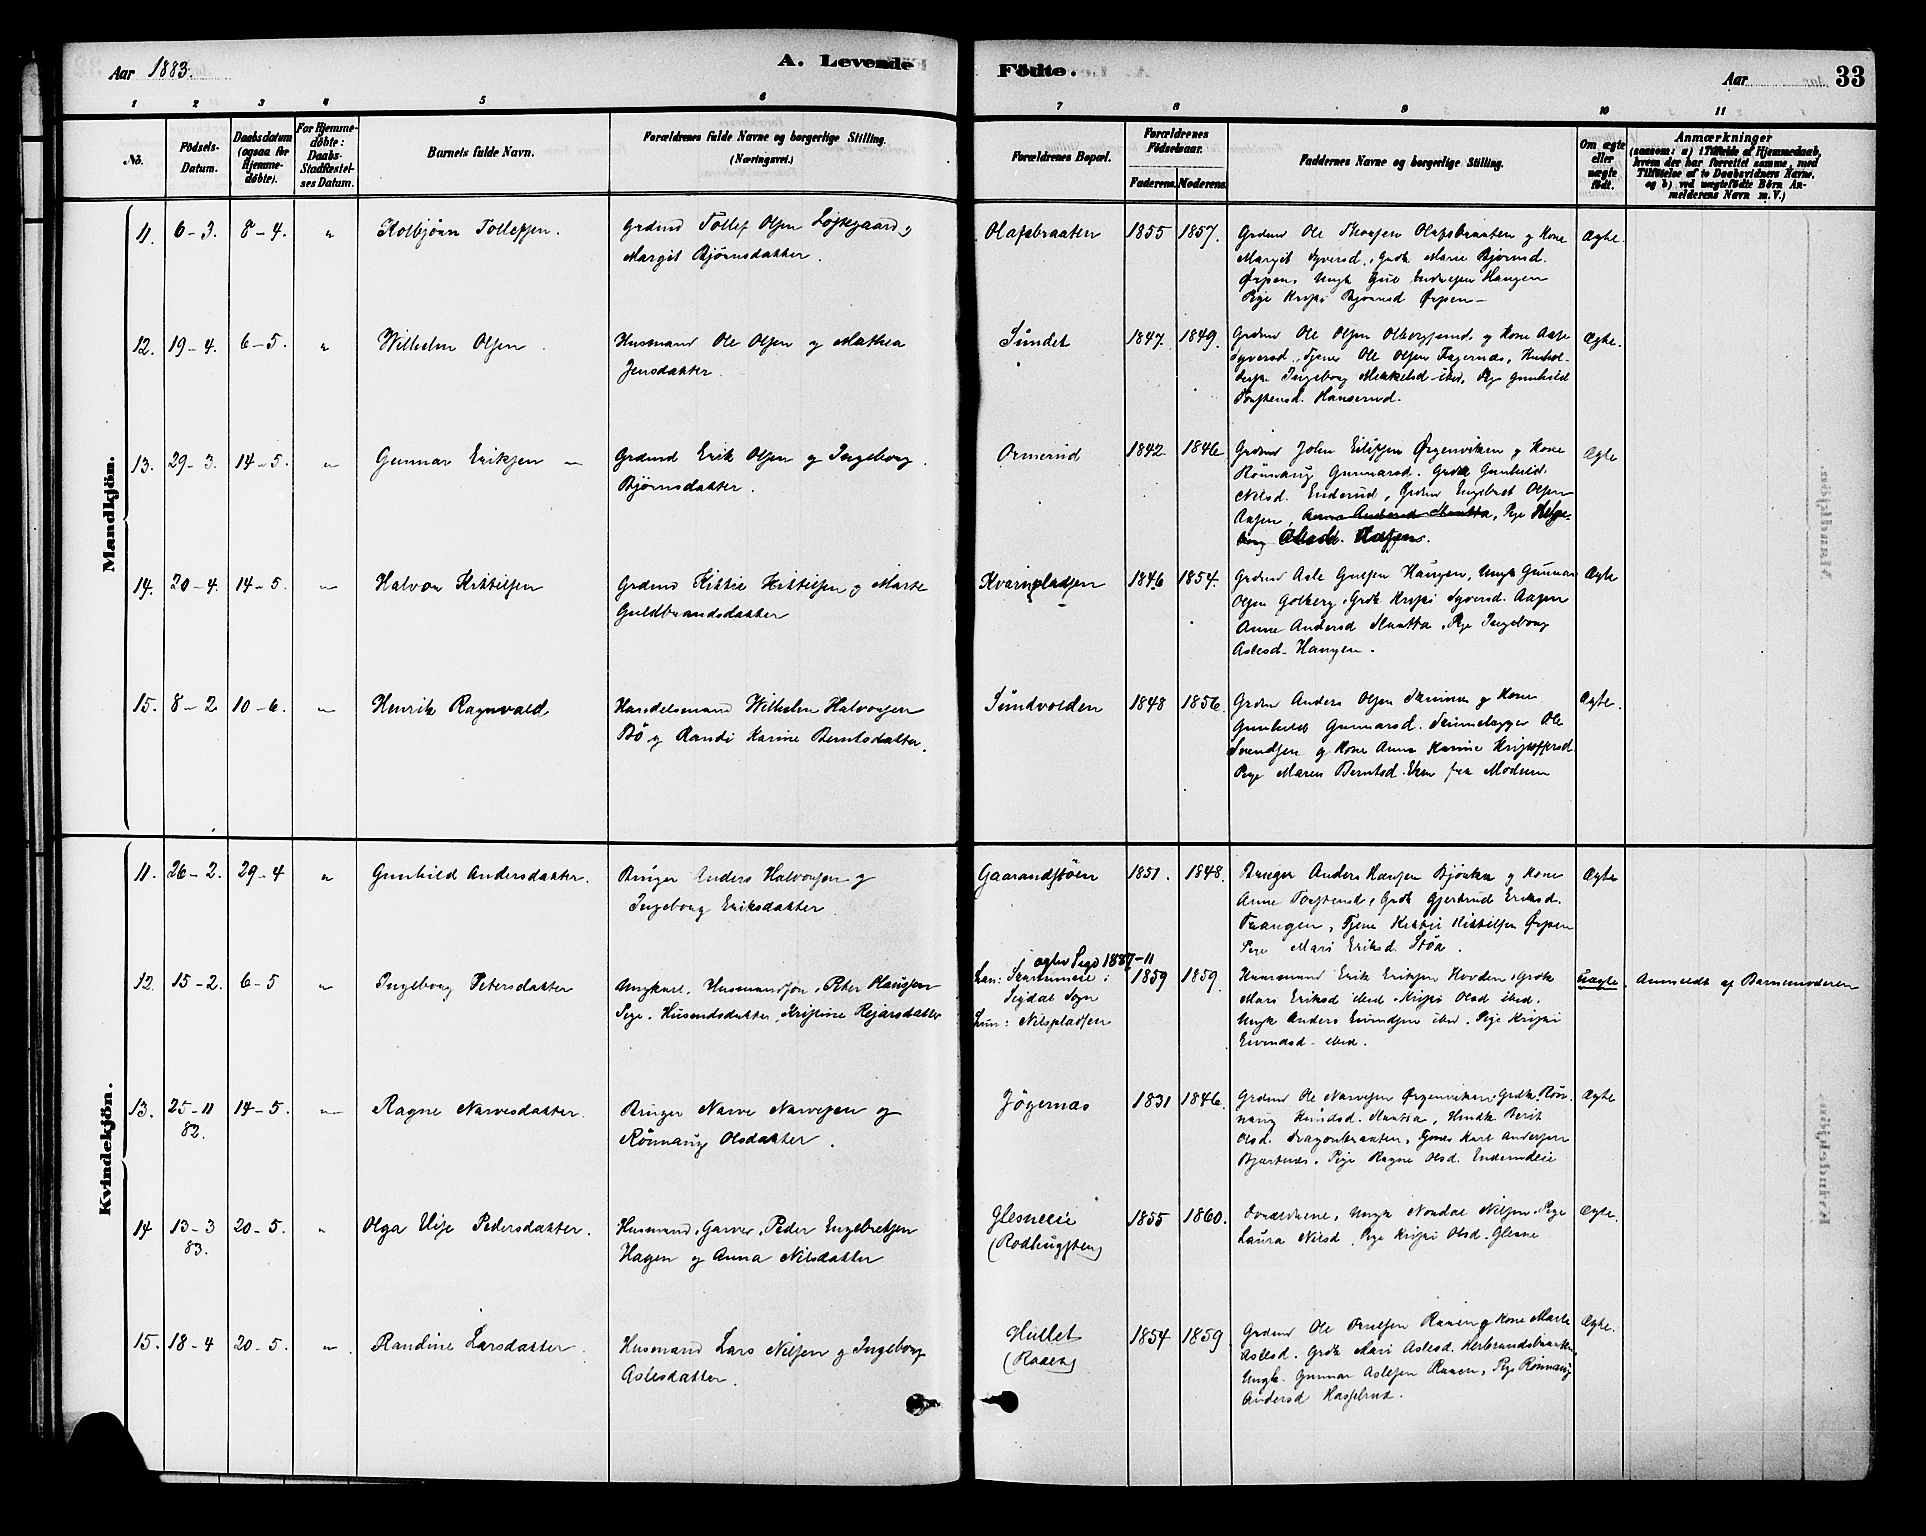 Aar 1883.
A. Levende
Fødte.
Aar
33
1 2 3 4 5 6 7 8 9 10 11
No.
Fødsels-Datum.
Daabsdatum (ogsaa for Hjemmedøbte).
For Hjemmedøbte: Daabs-Stadfæstelses Datum.
Barnets fulde Navn.
Forældrenes fulde Navne og borgerlige Stilling. (Næringsvei.)
Forældrenes Bopæl.
Forældrenes Fødselsaar.
Faderens. Moderens.
Faddernes Navne og borgerlige Stilling.
Om ægte eller uægte født.
Anmærkninger
(saasom: a) i Tilfælde af Hjemmedaab, hvem der har forrettet samme, med Tilføielse af to Daabsvidners Navne, og b) ved uægtefødte Børn Anmelderens Navn m. V.)
Mandkjön.
11. 6-3. 8-4. " Kolbjørn Tollefsen. Grdmd Tollef Olsen Løkegaard og Olafsbraaten 1855 1857. Grdmd Ole Thorsen Olafsbraaten og Kone Ægte.
Margit Bjørnsdatter. Margit Syversd., Grdk Marie Bjørnsd.
Ørpen, Ungk Gul Endresen Haugen
Pige Kristi Bjørnsd Ørpen-
12. 19-4. 6-5. " Wilhelm Olsen. Husmand Ole Olsen og Mathea Sundet 1847. 1849. Grdmd Ole Olsen og Kone Aase Ægte.
Jensdatter. Syversd., Tjener Ole Olsen Fagernæs,
Ingeborg Mikkelsd ibid, Pige Gunhild
Torstensd. Hanserud.
13. 29-3. 14-5. " Gunnar Eriksen Grdmd Erik Olsen og Ingeborg Ormerud 1842 1846 Grdmd John Eilifsen Ørgenviken og Kone Ægte
Bjørnsdatter. Rønnaug Gunnarsd. Grdk Gunhild
Nilsd. Enderud, Grdmd Engebret Olsen
Aasen, Anne Andersd Skautta, Pige
14. 20-4. 14-5. " Halvor Kittilsen Grdmd Kittil Kittilsen og Marte Kvernpladsen 1846 1854. Grdmd Asle Haugen, Ungk Gunnar Ægte
Guldbrandsdatter Olsen Golberg, Grdk Kristi Syversd. Aasen
Anne Andersd Skautta, Pige Ingeborg
Aslesd. Haugen.
15. 8-2. 10-6. " Henrik Ragnvald Handelsmand Wilhelm Halvorsen Sundvolden 1848 1856. Grdmd Anders Olsen og Kone Ægte.
Bø og Randi Karine Berntsdatter. Gunhild Gunnarsd. Ole
Svendsen og Kone Anne Karine Kristoffersd.
Pige Maren Berntsd. fra Modum
Kvindekjön.
11. 26-2. 29-4 " Gunhild Andersdatter. Bruger Anders Halvorsen og Gaarandstøen 1851. 1848. Bruger Anders Hansen Bjørka og Kone Ægte
Ingeborg Eriksdatter. Anne Torstensd, Grdk Gjertrud Eriksd.
Traangen, Tjener Kittil Kittilsen Ørpen
Pige Mari Eriksd. Støa.
ogtv Sigd 1887-11
12. 15-2. 6-5 " Ingeborg Petersdatter Ungkarl, Husmandssøn, Peter Hansen Han: i 1859 1859. Husmand Erik Eriksen Hovden, Grdk Uægte. Anmeldt af Barnemoderen
Pige, Husmdsdatter, Kristine Reiarsdatter Sigdal Sogn Mari Eriksd ibid. Kristi Olsd ibid.
Hun: Nilspladsen Ungk Anders Eivindsen ibid, Pige Kristi
Eivindsd ibid.
13. 25-11 82. 14-5. " Ragne Narvesdatter. Bruger Narve Narvesen og Jøgernæs 1831 1846. Grdmd Ole Narvesen Ørgenviken Grdk Røn- Ægte
Rønnaug Olsdatter. naug Knudsd. Skautta, Hmdk Berit
Olsd. Dragonbraaten, Tjener Karl Andersen
Bjertnæs, Pige Ragne Olsd. Enderudeie
14 13-3 83. 20-5. " Olga Elise Pedersdatter. Husmand, Garver, Peder Engebretsen Glesneeie 1855 1860. Forældrene, Ungk Nils, Pige Ægte.
Hagen og Anna Nilsdatter (Rødhugsten) Laura Nilsd, Pige Kristi Olsd. Glesne
15. 18-4 20-5. " Randine Larsdatter. Husmand Lars Nilsen og Ingeborg Hullet 1854 1859 Grdmd Ole Raaen og Kone Marte Ægte.
Aslesdatter. (Raaen) Aslesd. Grdk Mari Aslesd. Herbrandsbraaten,
Ungk. Gunnar Aslesen Raaen, Pige Rønnaug
Andersd Hasselrud.